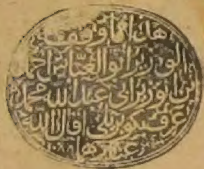 هذا ما وقف
الوزير ابو العباس احمد
ابن الوزير ابي عبد الله محمد
عرف بكوپريلي اقال الله
عثارهما
١٠٨٨